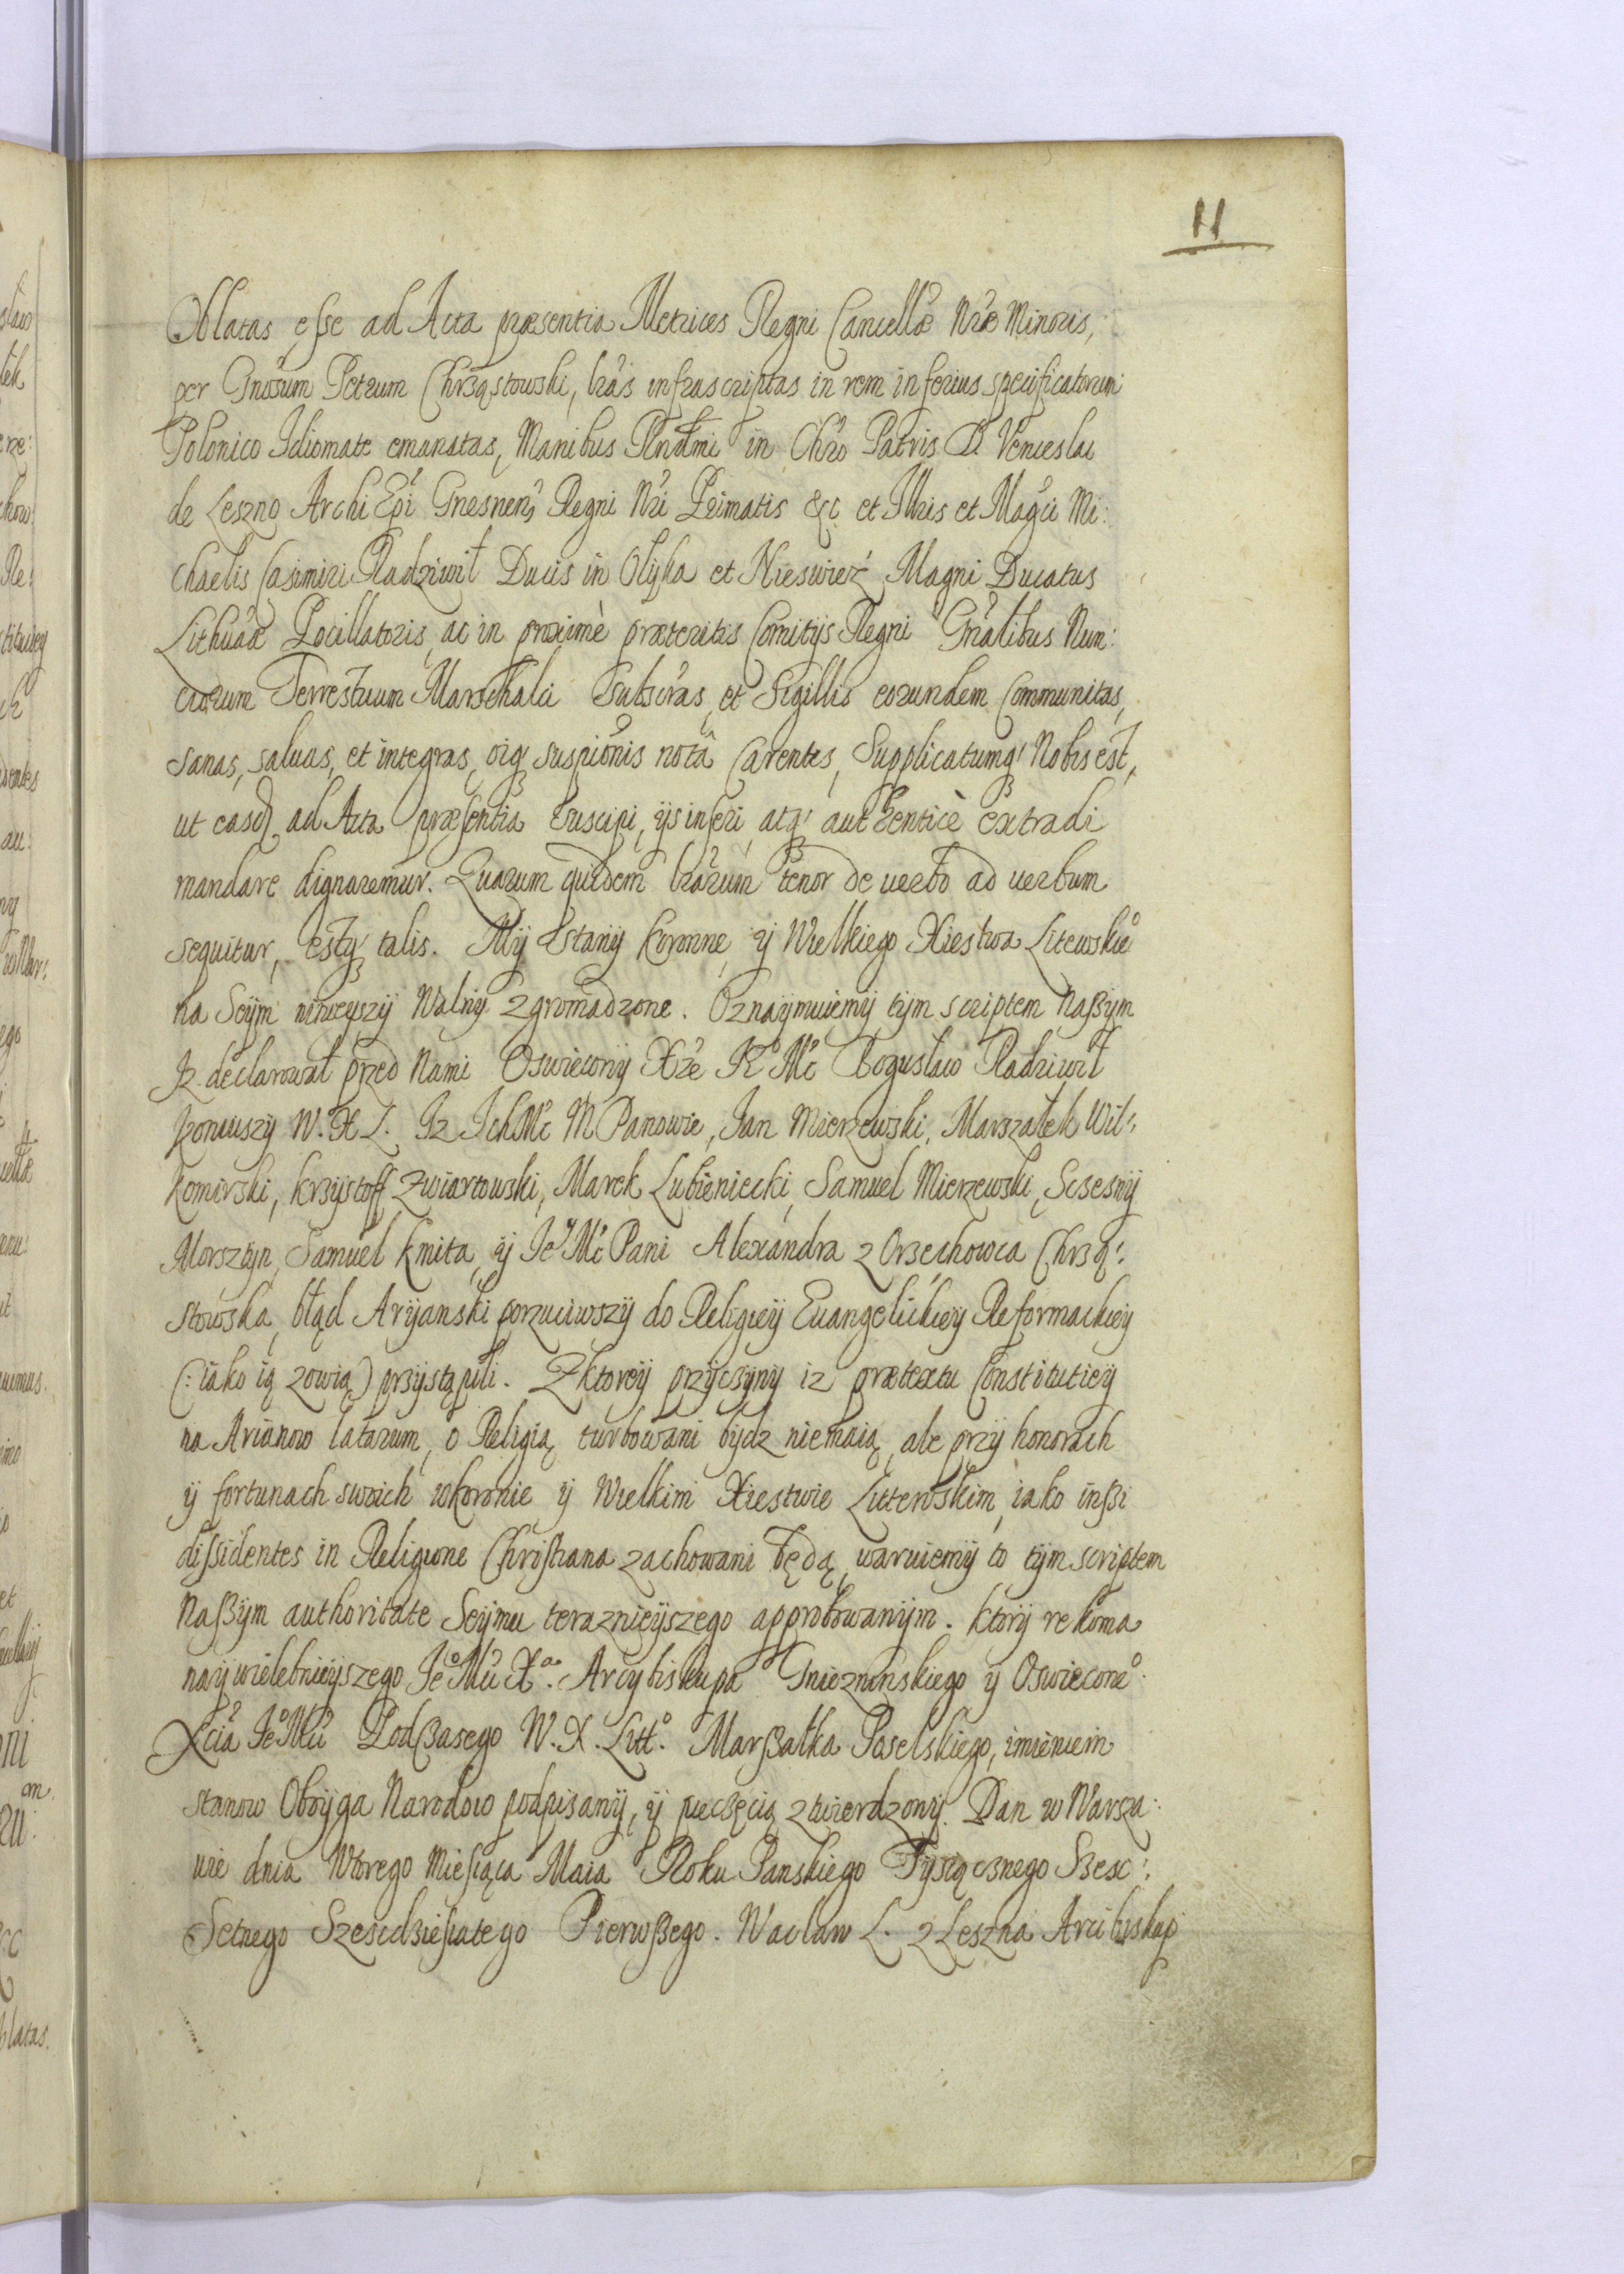 11
Oblatas esse ad Acta præsentia Metrices Regni Cancellæ Nræ Minoris,
per Gnosum Petrum Chrząstowski, lras infrascriptas in rem inferius specificatorum
Polonico Idiomate emanatas, Manibus Rndmi in Chro Patris D. Venceslai
de Leszno Archi Epi Gnesnen, Regni Nri Primatis &c et Illris et Magci Mi:
chaelis Casimiri Radziwił Ducis in Olyka et Nieswiez Magni Ducatus
Lithuæ Pocillatoris, ac in proximè præteritis Comitijs Regni Gnalibus Nun:
ciorum Terrestrium Marschalci Subscras, et Sigillis eorundem Communitas,
sanas, saluas, et integras, oiq suspionis notâ Carentes, Supplicatumq Nobis est,
ut easd ad Acta præsentia Suscipi, ijs inseri, atq authenticè extradi
mandare dignaremur. Quarum quidem lrarum tenor de uerbo ad uerbum
sequitur, estq talis. My Stany Koronne, y Wielkiego Xiestwa Litewskieo
na Seym ninieyszy Walny zgromadzone. Oznaymuiemy tym scriptem naßym
Iz declarował przed Nami Oswiecony Xże Ko Mć Bogusław Radziwił
Koniuszy W. X L. Iz Ich Mć M Panowie, Jan Mierzewski, Marszałek Wił:
komirski, Krzysztoff Zwiartowski, Marek Lubieniecki, Samuel Mierzewski, Sczesny
Morsztyn, Samuel Kmita, y Iey Mć Pani Alexandra z Orzechowca Chrzą:
stowska, błąd Aryanski porzuciwszy do Religiey Euangelickiey Reformackiey
(: iako ią zowią) przystąpili. Z ktorey przyczyny iz prætextu Constitutiey
na Arianow latarum, o Religią turbowani bydz niemaią, ale przy honorach
y fortunach swoich w koronie y Wielkim Xiestwie Littewskim, iako inßi
dissidentes in Religione Christiana zachowani będą, waruiemy to tym scriptem
Naßym authoritate Seymu teraznieyszego approbowanym. Ktory rekoma
naywielebnieyszego Ieo Mci Xa. Arcybiskupa Gniezninskiego y Oswieconeo
Xcia Ieo Mci Podßasego W. X. Litto. Marßałka Poselskiego, imieniem
stanow Oboyga Narodow podpisany, y pieczęcią ztwierdzony. Dan w Warsza:
wie dnia Wtorego Miesiąca Maia Roku Panskiego Tysiącznego Szesc:
Setnego Szescdziesiatego Pierwßego. Wacław L. z Leszna Arcibiskup